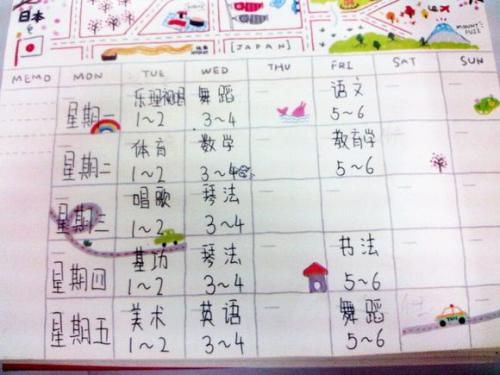 日本
[JAPAN]
MOUNT FUJI
MEMO MON TUE WED THU FRI SAT SUN
乐理视唱 舞蹈 语文
星期一 1~2 3~4 5~6
体育 数学 教育学
星期二 1~2 3~4 5~6
唱歌 琴法
星期三 1~2 3~4
基功 琴法 书法
星期四 1~2 3~4 5~6
美术 英语 舞蹈
星期五 1~2 3~4 5~6
TAXI